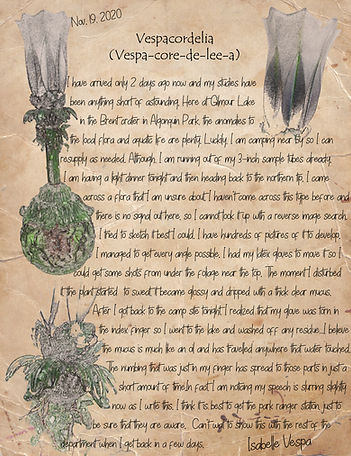 Nov. 19. 2020
Vespacordelia
(Vespa-core-dee-lee-a)
I have arrived only 2 days ago now and my studies have
been anything short of astounding. Here at Gilmour Lake
in the Brent order in Algonquin Park, the anomalies to
the local flora and aquatic life are plenty. Luckily, I am camping near by so I can
resupply as needed. Although, I am running out of my 3-inch sample tubes already.
I am having a light dinner tonight and then heading back to the northern tip, I came
across a flora that I am unsure about. I haven't come across this type before and
there is no signal out here, so I cannot look it up with a reverse image search.
I tried to sketch it best I could. I have hundreds of pictures of it to develop.
I managed to get every angle possible. I had my latex gloves to move it so I
could get some shots from under the foliage near the top. The moment I disturbed
it the plant started to sweat it became glossy and dripped with a thick clear mucus.
After I got back to the camp site tonight I realized that my glove was torn in
the index finger so I went to the lake and washed off any residue...I believe
the mucus is much like an oil and has travelled anywhere that water touched.
The numbing that was just in my finger has spread to those parts in just a
short amount of time.In fact I am noticing my speech is slurring slightly
now as I write this. I think it is best to get the park ranger station just to
be sure that they are aware. Can't wait to show this with the rest of the
department when I get back in a few days.
Isabelle Vespa